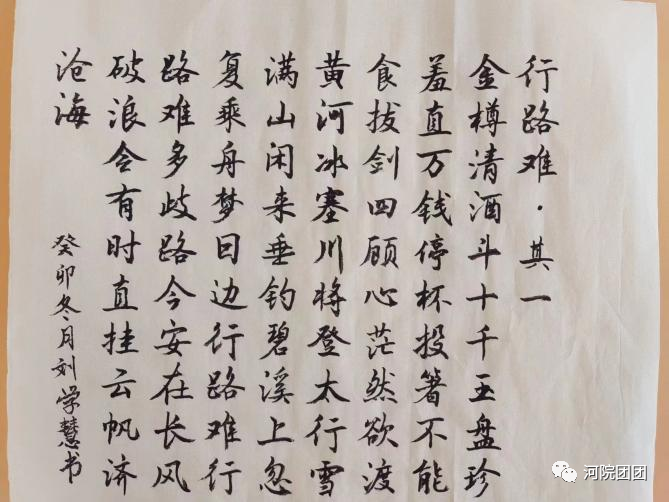 行路难·其一
金樽清酒斗十千玉盘珍
羞直万钱停杯投箸不能
食拔剑四顾心茫然欲渡
黄河冰塞川将登太行雪
满山闲来垂钓碧溪上忽
复乘舟梦日边行路难行
路难多歧路今安在长风
破浪会有时直挂云帆济
沧海
癸卯冬月刘学慧书
河院团团